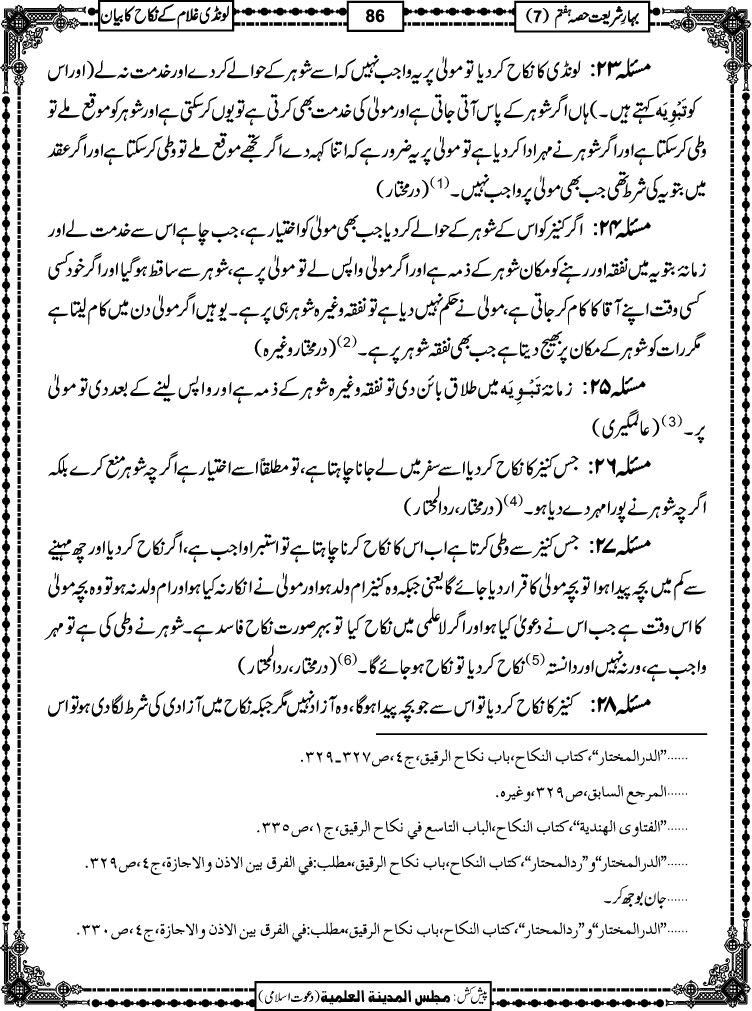 بہارِ شریعت حصہ ہفتم (7)
86
لونڈی غلام کے نکاح کا بیان
مسئلہ ۲۳: لونڈی کا نکاح کر دیا تو مولیٰ پر یہ واجب نہیں کہ اسے شوہر کے حوالے کر دے اور خدمت نہ لے (اور اس
کو تَبْوِیَہ کہتے ہیں۔) ہاں اگر شوہر کے پاس آتی جاتی ہے اور مولیٰ کی خدمت بھی کرتی ہے تو یوں کر سکتی ہے اور شوہر کو موقع ملے تو
وطی کر سکتا ہے اور اگر شوہر نے مہر ادا کر دیا ہے تو مولیٰ پر یہ ضرور ہے کہ اتنا کہہ دے اگر تجھے موقع ملے تو وطی کر سکتا ہے اور اگر عقد
میں بتویہ کی شرط تھی جب بھی مولیٰ پر واجب نہیں۔(1) (درمختار)
مسئلہ ۲۴: اگر کنیز کو اس کے شوہر کے حوالے کر دیا جب بھی مولیٰ کو اختیار ہے، جب چاہے اس سے خدمت لے اور
زمانۂ بتویہ میں نفقہ اور رہنے کو مکان شوہر کے ذمہ ہے اور اگر مولیٰ واپس لے تو مولیٰ پر ہے، شوہر سے ساقط ہو گیا اور اگر خود کسی
کسی وقت اپنے آقا کا کام کر جاتی ہے، مولیٰ نے حکم نہیں دیا ہے تو نفقہ وغیرہ شوہر ہی پر ہے۔ یوہیں اگر مولیٰ دن میں کام لیتا ہے
مگر رات کو شوہر کے مکان پر بھیج دیتا ہے جب بھی نفقہ شوہر پر ہے۔(2) (درمختار وغیرہ)
مسئلہ ۲۵: زمانۂ تَبْوِیَہ میں طلاق بائن دی تو نفقہ وغیرہ شوہر کے ذمہ ہے اور واپس لینے کے بعد دی تو مولیٰ
پر۔(3) (عالمگیری)
مسئلہ ۲۶: جس کنیز کا نکاح کر دیا اسے سفر میں لے جانا چاہتا ہے، تو مطلقاً اسے اختیار ہے اگرچہ شوہر منع کرے بلکہ
اگرچہ شوہر نے پورا مہر دے دیا ہو۔(4) (درمختار، ردالمحتار)
مسئلہ ۲۷: جس کنیز سے وطی کرتا ہے اب اس کا نکاح کرنا چاہتا ہے تو استبرا واجب ہے، اگر نکاح کر دیا اور چھ مہینے
سے کم میں بچہ پیدا ہوا تو بچہ مولیٰ کا قرار دیا جائے گا یعنی جبکہ وہ کنیز ام ولد ہو اور مولیٰ نے انکار نہ کیا ہو اور ام ولد نہ ہو تو وہ بچہ مولیٰ
کا اس وقت ہے جب اس نے دعویٰ کیا ہو اور اگر لا علمی میں نکاح کیا تو بہر صورت نکاح فاسد ہے۔ شوہر نے وطی کی ہے تو مہر
واجب ہے، ورنہ نہیں اور دانستہ(5) نکاح کر دیا تو نکاح ہو جائے گا۔(6) (درمختار، ردالمحتار)
مسئلہ ۲۸: کنیز کا نکاح کر دیا تو اس سے جو بچہ پیدا ہوگا، وہ آزاد نہیں مگر جبکہ نکاح میں آزادی کی شرط لگا دی ہو تو اس
......”الدرالمختار“،کتاب النکاح،باب نکاح الرقیق،ج٤،ص٣٢٧۔٣٢٩.
......المرجع السابق،ص٣٢٩،وغیرہ.
......”الفتاوی الھندیة“،کتاب النکاح،الباب التاسع في نکاح الرقیق،ج١،ص٣٣٥.
......”الدرالمختار“و”ردالمحتار“،کتاب النکاح،باب نکاح الرقیق،مطلب:في الفرق بین الاذن والاجازة،ج٤،ص٣٢٩.
......جان بوجھ کر۔
......”الدرالمختار“و”ردالمحتار“،کتاب النکاح،باب نکاح الرقیق،مطلب:في الفرق بین الاذن والاجازة،ج٤،ص٣٣٠.
پیش کش: مجلس المدینة العلمیة (دعوت اسلامی)